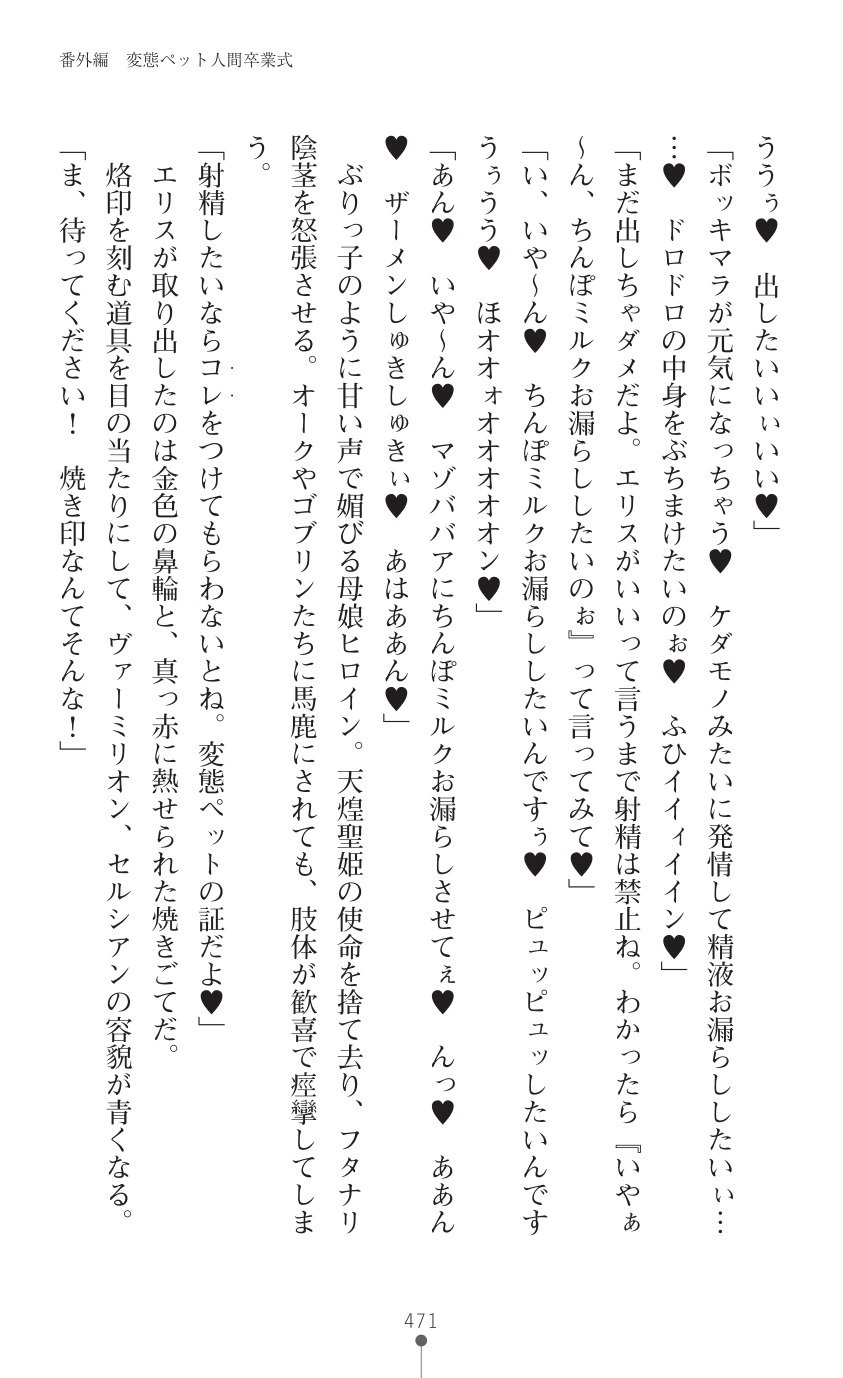 番外編　変態ペット人間卒業式
ううぅ♥　出したいいぃいい♥」
「ボッキマラが元気になっちゃう♥　ケダモノみたいに発情して精液お漏らししたいぃ…
…♥　ドロドロの中身をぶちまけたいのぉ♥　ふひイイィイイン♥」
「まだ出しちゃダメだよ。エリスがいいって言うまで射精は禁止ね。わかったら『いやぁ
～ん、ちんぽミルクお漏らししたいのぉ』って言ってみて♥」
「い、いや～ん♥　ちんぽミルクお漏らししたいんですぅ♥　ピュッピュッしたいんです
うぅうう♥　ほオオォオオオオオン♥」
「あん♥　いや～ん♥　マゾババアにちんぽミルクお漏らしさせてぇ♥　んっ♥　ああん
♥　ザーメンしゅきしゅきぃ♥　あはああん♥」
　ぶりっ子のように甘い声で媚びる母娘ヒロイン。天煌聖姫の使命を捨て去り、フタナリ
陰茎を怒張させる。オークやゴブリンたちに馬鹿にされても、肢体が歓喜で痙攣してしま
う。
「射精したいならコレをつけてもらわないとね。変態ペットの証だよ♥」
　エリスが取り出したのは金色の鼻輪と、真っ赤に熱せられた焼きごてだ。
　烙印を刻む道具を目の当たりにして、ヴァーミリオン、セルシアンの容貌が青くなる。
「ま、待ってください！　焼き印なんてそんな！」
471